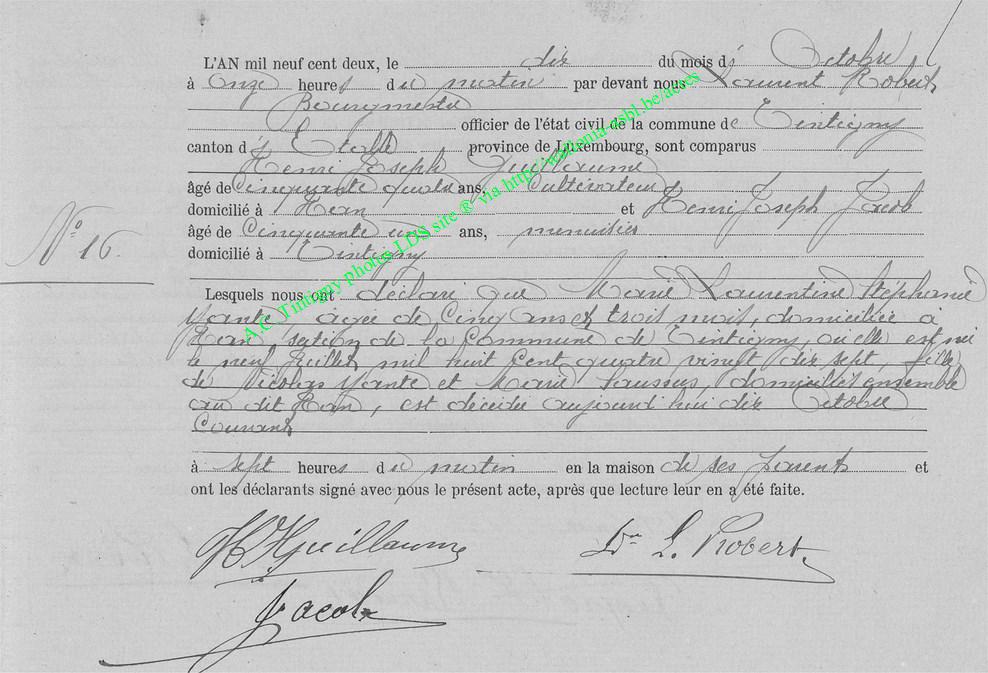 L'AN mil neuf cent deux, le dix du mois d' Octobre
à Onze heures du matin par devant nous Laurent Robert
Bourgmestre
officier de l'état civil de la commune de Tintigny
canton d' Etalle province de Luxembourg, sont comparus
Henri Joseph Guillaume
âgé de Cinquante quatre ans, Cultivateur
domicilié à Han et Henri Joseph Jacob
âgé de Cinquante un ans, menuisier
domicilié à Tintigny
N° 16.
Lesquels nous ont déclaré que Marie Laurentine Stéphanie
Yante agée de Cinq ans et trois mois, domiciliée à
Han, section de la Commune de Tintigny, où elle est née
le neuf Juillet mil huit Cent quatre vingt dix sept, fille
de Nicolas Yante et Marie, domiciliés ensemble
au dit Han, est décédée aujourd'hui dix Octobre
Courant
à sept heures du matin en la maison de ses parents et
ont les déclarants signé avec nous le présent acte, après que lecture leur en a été faite.
HJ Guillaume
L. Robert
Jacob
A.C Tintigny photos LDS site ® via http://wallonia-asbl.be/actes